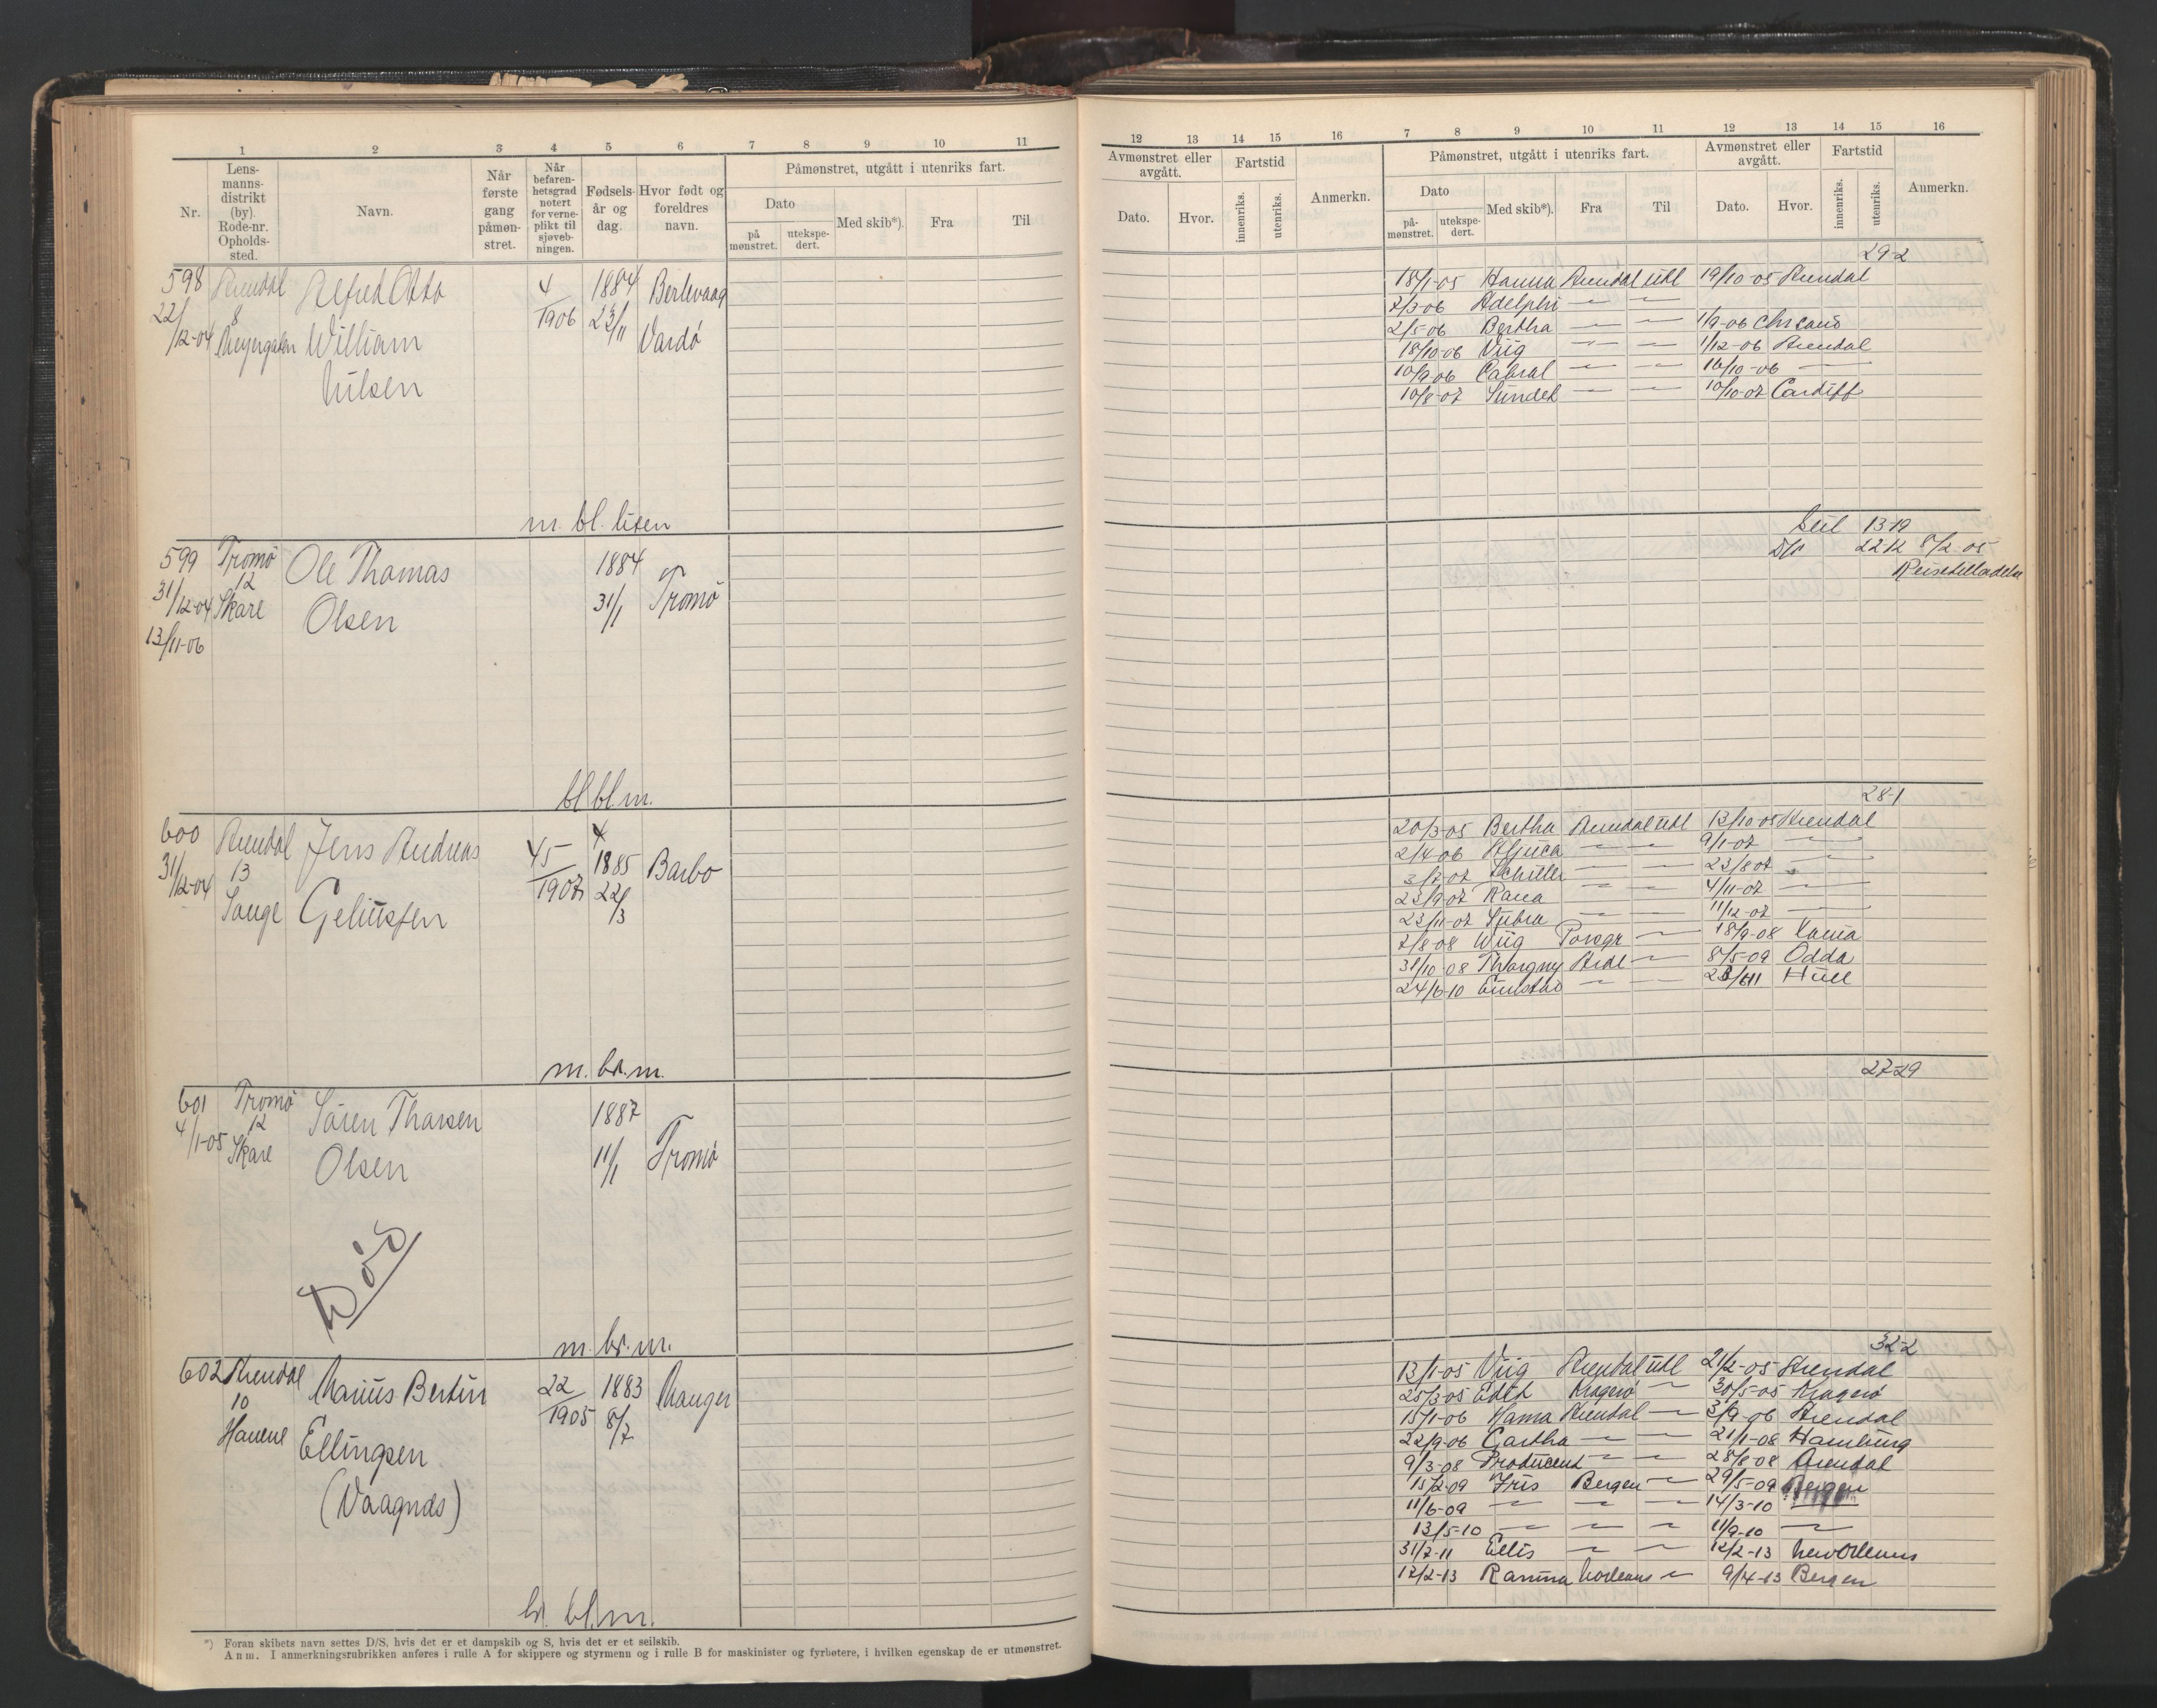 1 2 3 4 5 6 7 8 9 10 11
Nr.
Lens-
manns-
distrikt
(by)
Rode-nr.
Opholds-
sted.
Navn.
Når
første
gang
påmøn-
stret.
Når
befaren-
hetsgrad
notert
for verne-
plikt til
sjøveb-
ningen.
Fødsels-
år og
dag.
Hvor født og
foreldres
navn.
Påmønstret, utgått i utenriks fart.
Dato
på
mønstret.
utekspe-
dert.
Med skib*).
Fra
Til
598 Arendal Alfred Otto 4 1884 Berlevaag
22/12-04 8 William 1906 23/11 Vardö
Nilsen
m. bl. liten
599 Tromö Ole Thomas 1884
31/12-04 12 Skare Olsen 31/1 Tromö
13/11-06
bl. bl. m.
600 Arendal Jens Andreas 45 1885 Barbo
31/12-04 13 1907 22/3
Songe Geliusfen
m. br. m.
601 Tromö Sören Tharsen 1887
4/1-05 12 Skare Olsen 11/1 Tromö
Död
m. br. m.
602 Arendal Marius Bertin 22 1883 Manger
10 1905 8/7
Ellingsen
(Vaagnäs)
bl. m.
*) Foran skibets navn settes D/S, hvis det er et dampskib og S, hvis det er et seilskib.
Anm. I anmerkningsrubrikken anføres i rulle A for skippere og styrmenn og i rulle B for maskinister og fyrbøtere, i hvilken egenskap de er utmønstret.
12 13 14 15 16 7 8 9 10 11 12 13 14 15 16
Avmønstret eller
avgått.
Dato.
Hvor.
Fartstid
innenriks.
utenriks.
Anmerkn.
Påmønstret, utgått i utenriks fart.
Dato
på-
mønstret.
utekspe-
dert.
Med skib*).
Fra
Til
Avmønstret eller
avgått.
Dato.
Hvor.
Fartstid
innenriks.
utenriks.
Anmerkn.
29-2
18/1-05 Hanna Arendal utl 19/10-05 Arendal
2/3-06 Adelphi
2/5-06 Bertha 1/9-06
18/10-06 Viig 1/12-06 Arendal
10/9-06 Cabral 16/10-06
10/8-07 Sundet 10/10-07 Cardiff
Seil 13-19
D/S 22-12 8/2-05
Reisetilladelse
28-1
20/3-05 Bertha Arendal utl 12/10-05 Arendal
2/4-06 9/1-07
3/7-07 Schiller 23/8-07
23/9-07 Rana 4/11-07
23/11-07 11/12-07
7/8-08 Wiig Porsgr 18/9-08
31/10-08 Thorgny Ardl 8/5-09 Odda
24/6-10 Hull
27-29
32-2
13/1-05 Viig Arendal utl 21/2-05 Arendal
25/3-05 Edith Kragerö 30/5-05 Kragerö
15/1-06 Hanna Arendal 3/9-06 Arendal
22/9-06 Gartha 21/1-08 Hamburg
9/3-08 Producent 28/8-08 Arendal
15/2-09 Iris Bergen 29/5-09 Bergen
11/6-09 14/3-10
13/5-10 11/9-10
31/7-11 Ellis 12/2-13 New Orleans
17/2-13 Ranma Norleans 9/4-13 Bergen